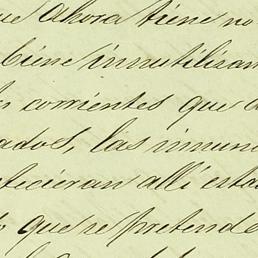 ue ahora tiene no
biene innutilizan
corrientes que a
ados, las inmun
tecieran alli estas
que se pretende